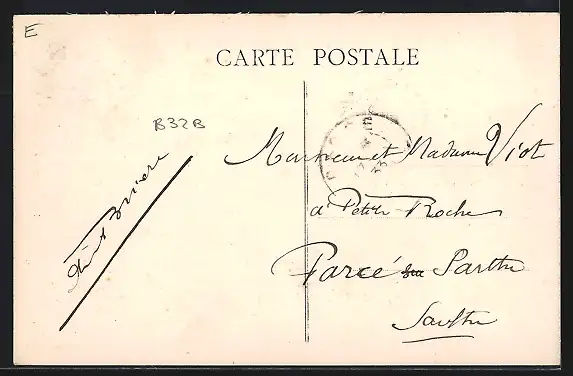 E
CARTE POSTALE
B32B
Monsieur et Madame Viot
à Petite Roche
Parcé sur Sarthe
Sarthe
Brière
33